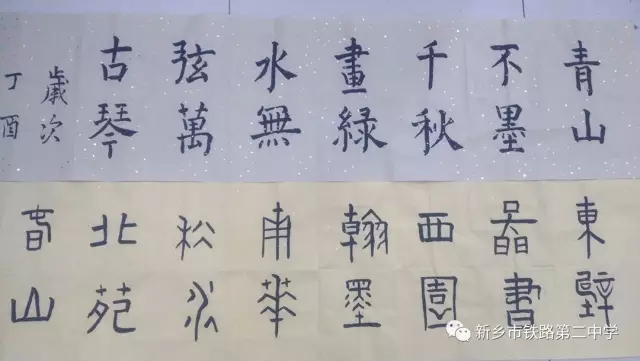 青山
不墨
千秋
畫綠
水無
弦萬
古琴
歲次
丁酉
東壁
圖書
西園
翰墨
南華
秋水
北苑
春山
新乡市铁路第二中学